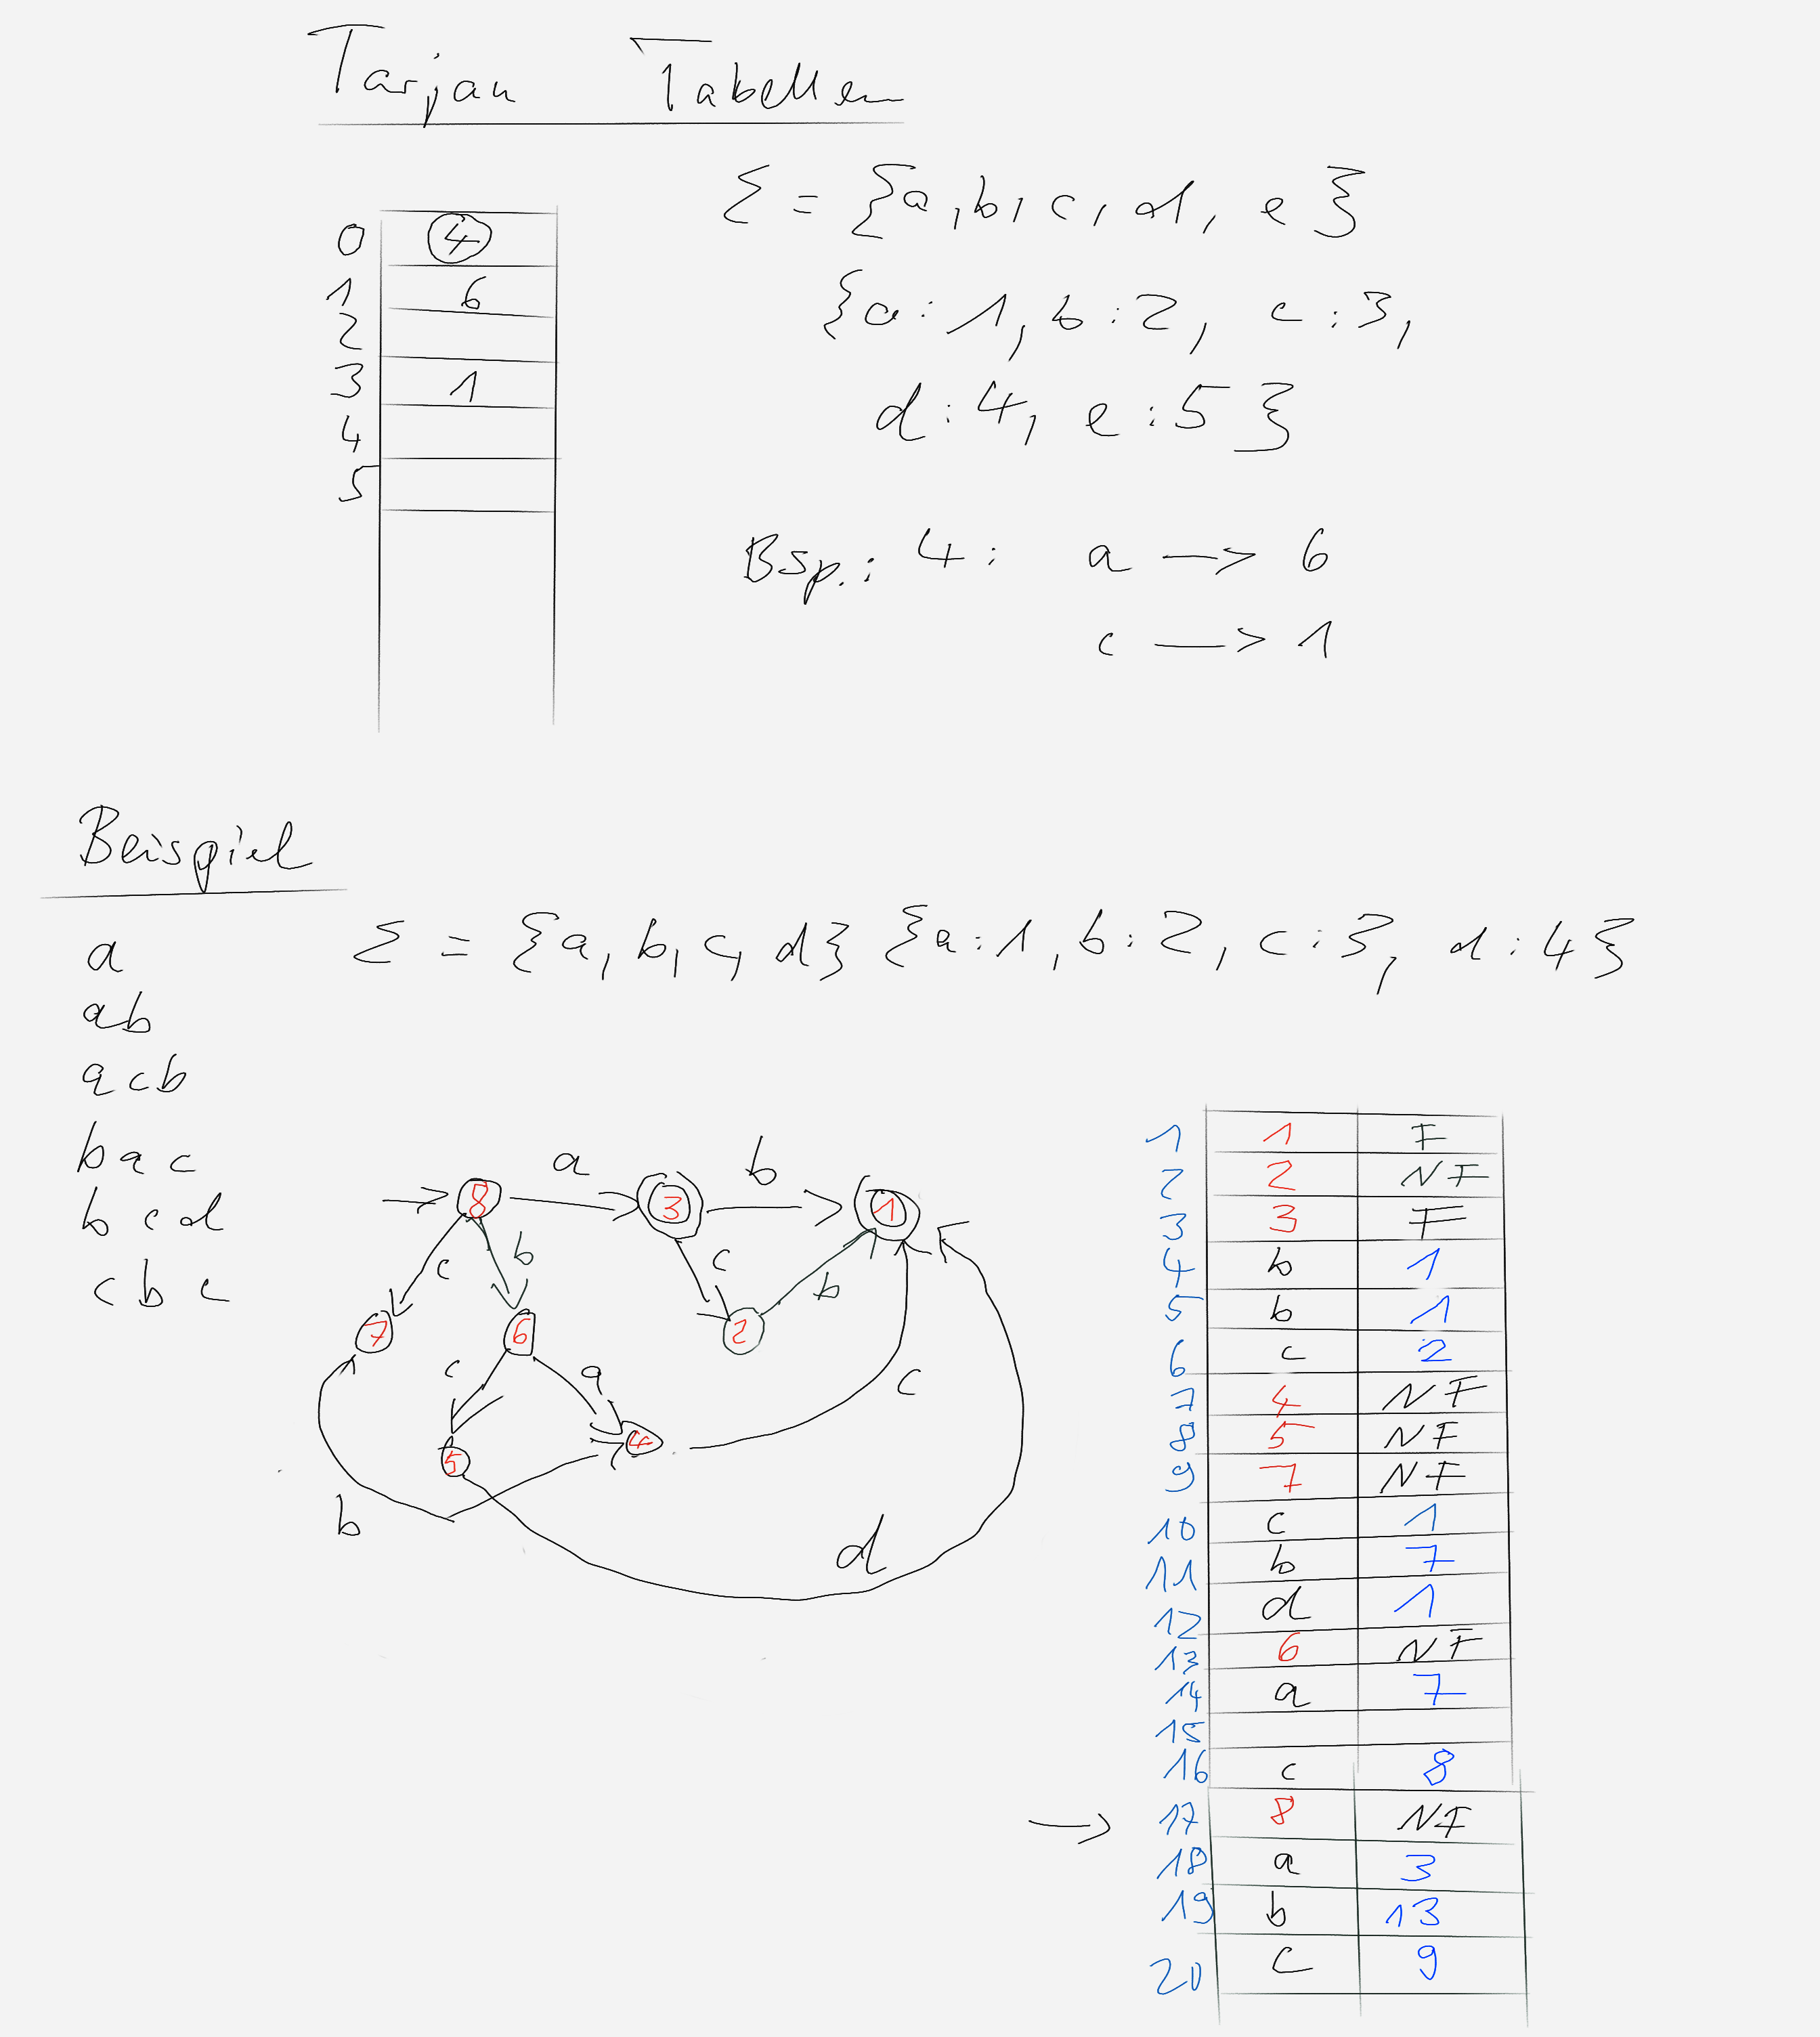 Tarjan Tabellen
Σ = {a, b, c, d, e}
{a:1, b:2, c:3,
d:4, e:5}
0 4
1 6
2
3 1
4
5
Bsp.: 4: a → 6
c → 1
Beispiel
Σ = {a, b, c, d} {a:1, b:2, c:3, d:4}
a
ab
acb
bac
bcd
cbc
8 a 3 b 1
c b c b
7 6 2
c a c
5 4
b d
1 1 F
2 2 NF
3 3 F
4 b 1
5 b 1
6 c 2
7 4 NF
8 5 NF
9 7 NF
10 c 1
11 b 7
12 d 1
13 6 NF
14 a 7
15
16 c 8
→ 17 8 NF
18 a 3
19 b 13
20 c 9